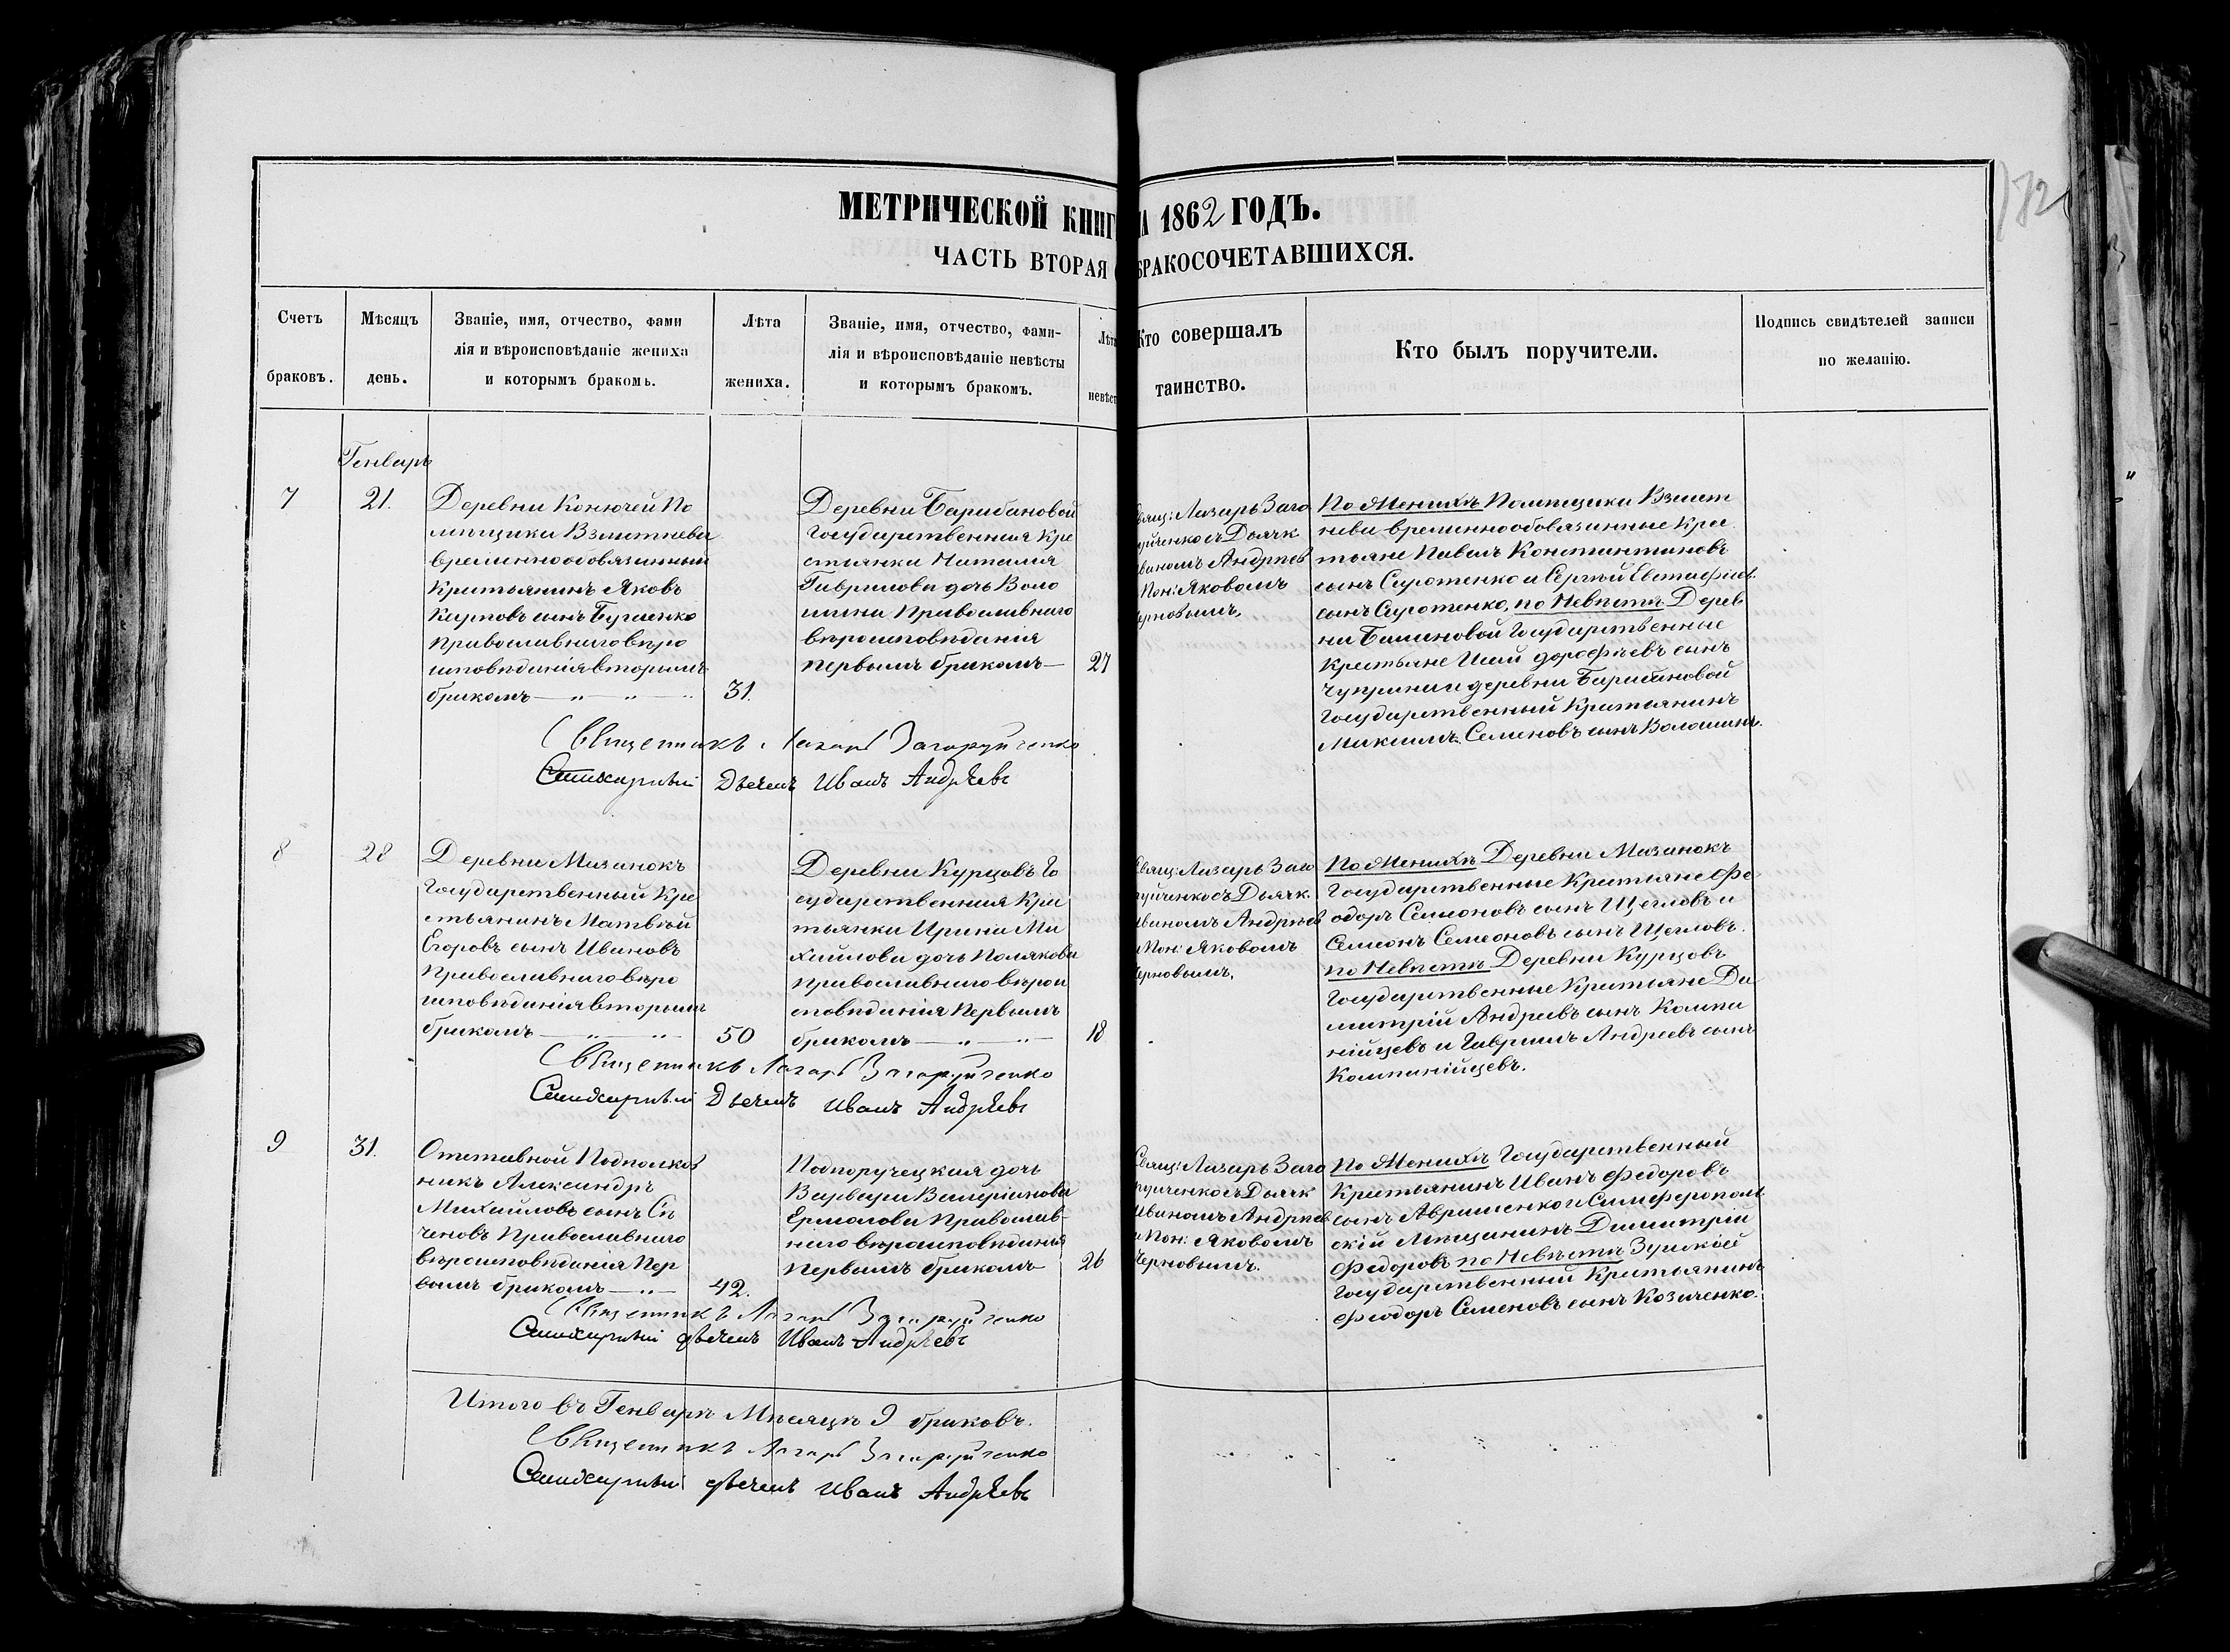 МЕТРИЧЕСКОЙ КНИГ
А 1862 ГОДЪ.
ЧАСТЬ ВТОРАЯ
БРАКОСОЧЕТАВШИХСЯ.
Счетъ
браковъ.
Мѣсяцъ
день.
Званіе, имя, отчество, фами
лія и вѣроисповѣданіе жениха
и которымъ бракомъ.
Лѣта
жениха.
Званіе, имя, отчество, фами-
лія и вѣроисповѣданіе невѣсты
и которымъ бракомъ.
Лѣт
невѣст
Кто совершалъ
таинство.
Кто былъ поручители.
Подпись свидѣтелей записи
по желанію.
Генварь
7
21.
Деревни Конючей По
мѣщика Взметнева
временнообовязанный
Крестьянинъ Яковъ
Карповъ сынъ
православнаго вѣро
исповѣданія вторымъ
бракомъ
31.
Деревни Барабановой
Государственная Кре
стьянка Наталія
Гаврилова дочь Воло
шина Православнаго
вѣроисповѣданія
первымъ бракомъ
27
Свящ: Лазарь Заго
руйченко съ Дьячк
Иваномъ Андрѣев
Пон: Яковомъ
Черновымъ.
По Женихѣ Помѣщика Взмет
нева временнообовязанные Крес
тьяне Павелъ Константиновъ
сынъ Сиротенко и Сергѣй Евстафіев
сынъ Сиротенко, по Невѣстѣ Дерев
ни Государственные
Крестьяне Исай дорофѣевъ сынъ
Чуприна и деревни Барабановой
Государственный Крестьянинъ
Максимъ Семеновъ сынъ Волошинъ.
Священникъ Лазарь Загоруйченко
Дьячекъ Иванъ Андрѣевъ
8
28
Деревни Мазанокъ
Государственный Кре
стьянинъ Матвѣй
Егоровъ сынъ Ивановъ
Православнаго вѣро
исповѣданія вторымъ
бракомъ
50
Деревни Курцовъ Го
сударственная Крес
тьянка Ирина Ми
хайлова дочь Полякова
православнаго вѣрои
сповѣданія Первымъ
бракомъ
18
Свящ: Лазарь Заго
руйченко съ Дьячк.
Иваномъ Андрѣев
и Пон: Яковомъ
Черновымъ.
По Женихѣ Деревни Мазанокъ
Государственные Крестьяне Фе
одоръ Семеоновъ сынъ Щегловъ и
Семеонъ Семеоновъ сынъ Щегловъ.
по Невѣстѣ Деревни Курцовъ
Государственные Крестьяне Ди
митрій Андреевъ сынъ Компа
нійцевъ и Гавріилъ Андреевъ сынъ
Компанійцевъ.
Священникъ Лазарь Загоруйченко
Дьячекъ Иванъ Андрѣевъ
9
31.
Отставной Подполков
никъ Александръ
Михайловъ сынъ Сѣ
ченовъ Православнаго
вѣроисповѣданія Пер
вымъ бракомъ
42.
Подпоручецкая дочь
Варвара Валеріанова
Ермолова Православ-
наго вѣроисповѣданія
Первымъ бракомъ
26
Свящ: Лазарь Заго
руйченко съ Дьячк
Иваномъ Андрѣев
и Пон: Яковомъ
Черновымъ.
По Женихѣ Государственный
Крестьянинъ Иванъ Федоровъ
сынъ Авраменко и Симферополь
скій Мѣщанинъ Димитрій
Федоровъ по Невѣстѣ Зуйской
Государственный Крестьянинъ
Феодоръ Семеновъ сынъ Козаченко.
Священникъ Лазарь Загоруйченко
дьячекъ Иванъ Андрѣевъ
Итого въ Генварѣ Мѣсяцѣ 9 браковъ.
Священникъ Лазарь Загоруйченко
дьячекъ Иванъ Андрѣевъ